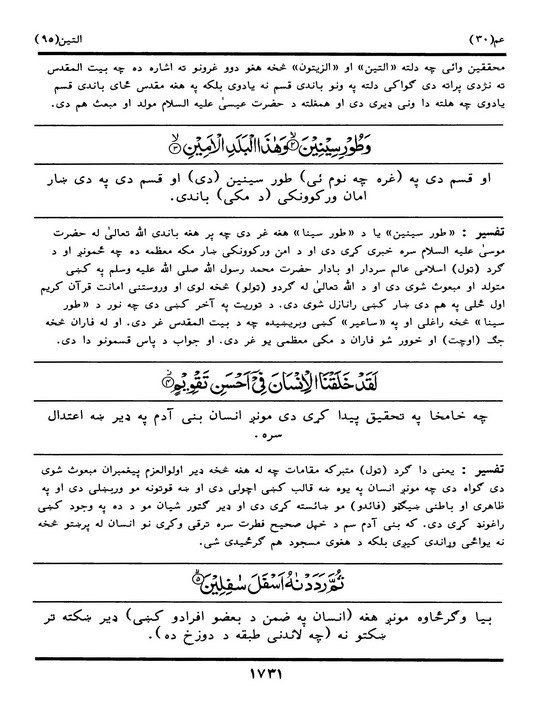 عم(۳۰)
التين(۹۵)
محققين وائي چه دلته «التين» او «الزيتون» څخه هغو دوو غرونو ته اشاره ده چه بيت المقدس
ته نژدې پراته دي گواکي دلته په ونو باندې قسم نه يادوي بلکه په هغه مقدس ځاى باندې قسم
يادوي چه هلته دا ونې ډيرې دي او همغلته د حضرت عيسىٰ عليه السلام مولد او مبعث هم دى.
وَطُورِ سِيْنِيْنَ ۙ﴿۲﴾ وَهٰذَا الْبَلَدِ الْاَمِيْنِ ۙ﴿۳﴾
او قسم دى په (غره چه نوم ئې) طور سينين (دى) او قسم دى په دې ښار
امان ورکوونکي (د مکې) باندې.
تفسير : «طور سينين» يا د «طور سينا» هغه غر دى چه پر هغه باندې الله تعالىٰ له حضرت
موسىٰ عليه السلام سره خبرې کړې دي او د امن ورکوونکي ښار مکه معظمه ده چه ځمونږ او د
گرد (ټول) اسلامي عالم سردار او بادار حضرت محمد رسول الله صلى الله عليه وسلم په کښې
متولد او مبعوث شوى دى او د الله تعالىٰ له گردو (ټولو) څخه لوى او وروستنى امانت قرآن کريم
اول ځلي په هم دې ښار کښې رانازل شوى دى. د توريت په آخر کښې دي چه نور د «طور
سينا» څخه راغلى او په «ساعير» کښې وبريښيده چه د بيت المقدس غر دى. او له فاران څخه
جگ (اوچت) او خوور شو فاران د مکې معظمې يو غر دى. او جواب د پاس قسمونو دا دى.
لَقَدْ خَلَقْنَا الْاِنْسَانَ فِيْٓ اَحْسَنِ تَقْوِيْمٍ ۙ﴿۴﴾
چه خامخا په تحقيق پيدا کړى دى مونږ انسان بني آدم په ډير ښه اعتدال
سره.
تفسير : يعنې دا گرد (ټول) متبرکه مقامات چه له هغه څخه ډير اولوالعزم پيغمبران مبعوث شوي
دي گواه دي چه مونږ انسان په يوه ښه قالب کښې اچولى دى او ښه قوتونه مو وربښلي دي او په
ظاهري او باطني ښيگڼو (فائدو) مو ښائسته کړى دى او ډير گټور شيان مو د ده په وجود کښې
راغونډ کړي دي. که بني آدم سم د خپل صحيح فطرت سره ترقي وکړي نو انسان له پرښتو څخه
نه يواځې وړاندې کيږي بلکه د هغوى مسجود هم گرځيدى شي.
ثُمَّ رَدَدْنٰهُ اَسْفَلَ سٰفِلِيْنَ ۙ﴿۵﴾
بيا وگرځاوه مونږ هغه (انسان په ضمن د بعضو افرادو کښې) ډير ښکته تر
ښکتو نه (چه لاندنۍ طبقه د دوزخ ده).
۱۷۳۱